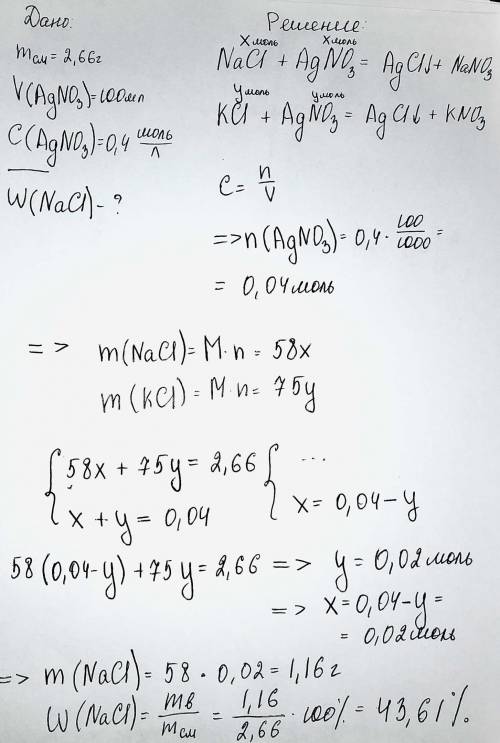 Дано:
m см = 2,66г
V(AgNO₃)=100мл
C(AgNO₃)=0,4 моль/л
W(NaCl) - ?
Решение:
x моль x моль
NaCl + AgNO₃ = AgCl↓ + NaNO₃
y моль y моль
KCl + AgNO₃ = AgCl↓ + KNO₃
C = n/V
=> n(AgNO₃) = 0,4 · 100/1000 =
= 0,04 моль
=> m(NaCl) = M·n = 58x
m(KCl) = M·n = 75y
{ 58x + 75y = 2,66 { ...
x + y = 0,04 x = 0,04 - y
58(0,04-y) + 75y = 2,66 => y = 0,02 моль
=> x = 0,04 - y =
= 0,02 моль
=> m(NaCl) = 58 · 0,02 = 1,16 г
W(NaCl) = mв/mсм = 1,16/2,66 · 100% = 43,61%